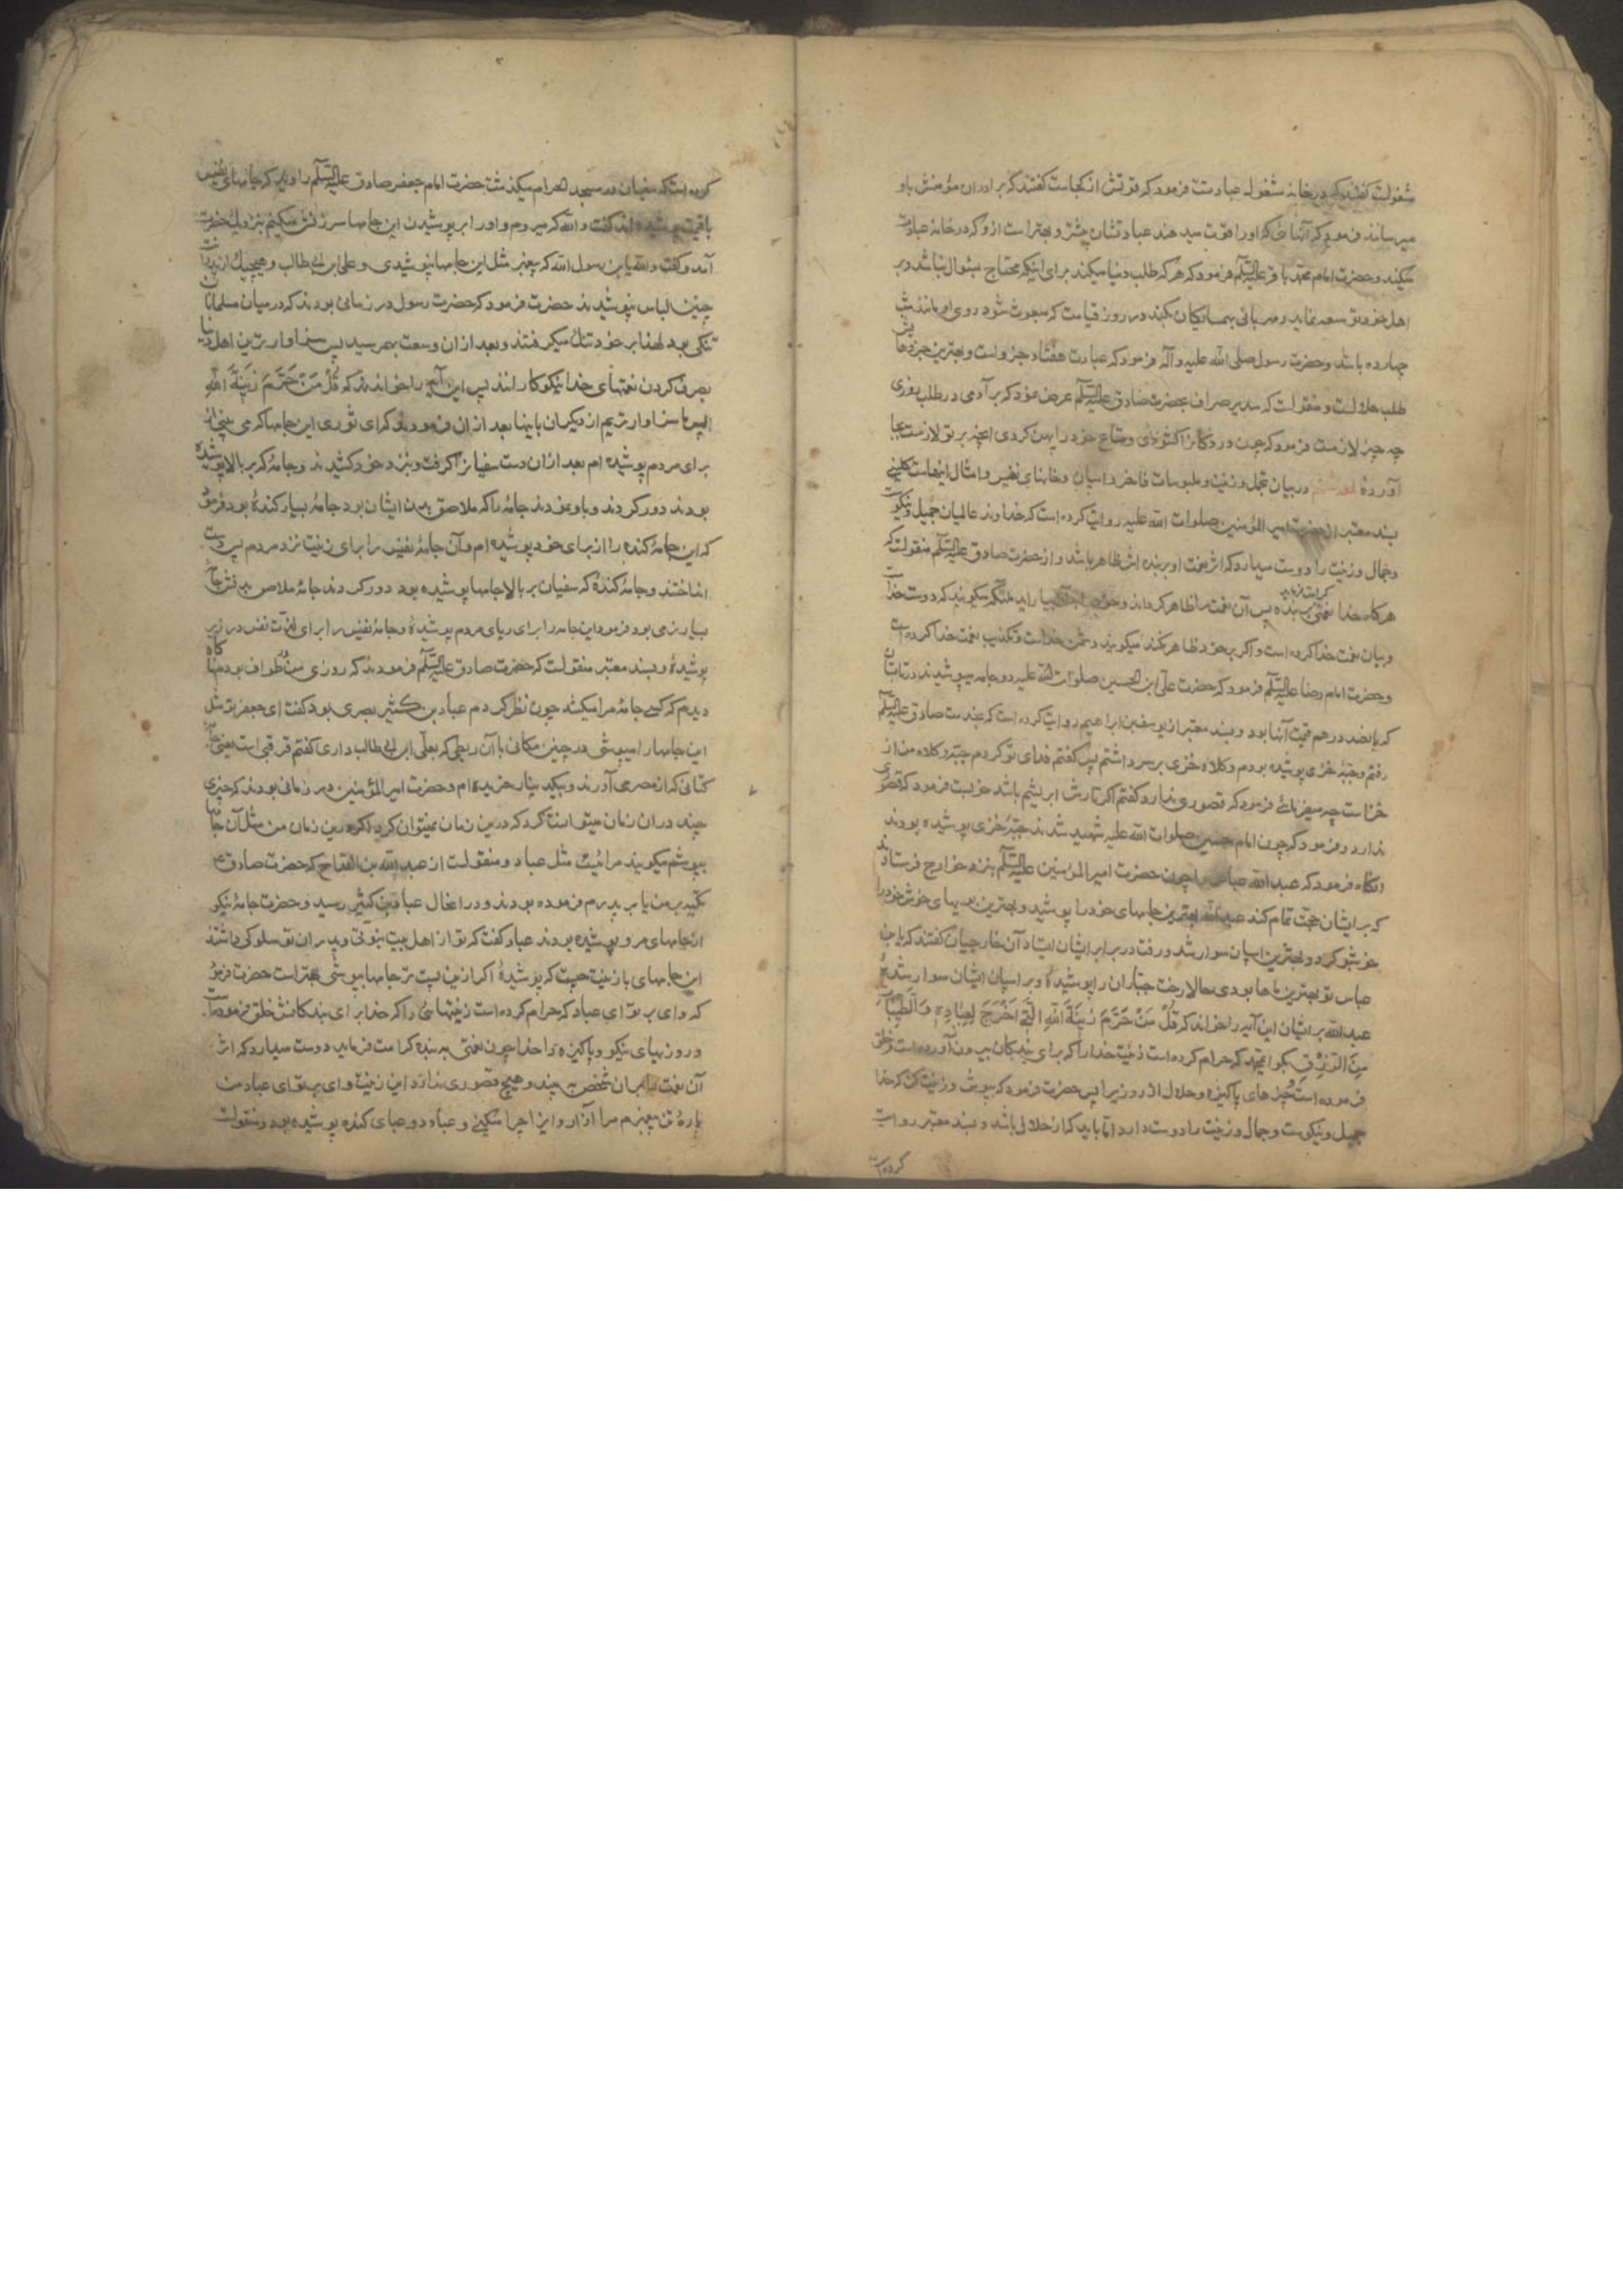 مشغولست گفتند که در خانه مشغول عبادتست فرمود که قوتش از کجاست گفتند که برادران مؤمنش باو
میرسانند فرمود که آنهائی که او را قوت میدهند عبادتشان بیشتر و بهتر است از و که در خانه عبادت
میکند و حضرت امام محمد باقر علیه السلام فرمود که هر که طلب دنیا میکند برای اینکه محتاج بسؤال نباشد و بر
اهل خود توسعه نماید و مهربانی بهمسایگان بکند در روز قیامت که مبعوث شود روی او مانند شب
چهارده باشد و حضرت رسول صلی الله علیه و آله فرمود که عبادت هفتاد جزو است و بهترین جزوهایش
طلب حلالست و منقولست که سدیر صراف بحضرت صادق علیه السلام عرض نمود که بر آدمی در طلب روزی
چه چیز لازمست فرمود که چون در دکانرا گشودی و متاع خود را پهن کردی انچه بر تو لازمست بجا
آوردهٔ در بیان تجمل و زینت و ملبوسات فاخر و اسپان و خانهای نفیس و امثال اینهاست کلینی
بسند معتبر از حضرت امیر المؤمنین صلوات الله علیه روایت کرده است که خداوند عالمیان جمیل و نیکوست
و جمال و زینت را دوست میدارد که اثر نعمت او بر بنده اش ظاهر باشد و از حضرت صادق علیه السلام منقولست که
هر گاه خدا نعمتی بر بنده کرامت فرماید پس آن نعمت را ظاهر گرداند و خود را بیاراید ملئکه میگویند که دوست خداست
و بیان نعمت خدا کرده است و اگر بر خود ظاهر نکند میگویند دشمن خداست و تکذیب نعمت خدا کرده است
و حضرت امام رضا علیه السلام فرمود که حضرت علی ابن الحسین صلوات الله علیه دو جامه میپوشیدند در تابستان
که پانصد درهم قیمت آنها بود و بسند معتبر از یوسف بن ابراهیم روایت کرده است که بخدمت صادق علیه السلام
رفتم و جبّهٔ خزی پوشیده بودم و کلاه خزی بر سر داشتم پس گفتم فدای تو گردم جبّه و کلاه من از
خز است چه میفرمائی فرمود که قصوری ندارد گفتم اگر تارش ابریشم باشد خوبست فرمود که قصوری
ندارد و فرمود که چون امام حسین صلوات الله علیه شهید شدند جبّه خزی پوشیده بودند
انگاه فرمود که عبد الله عباس را چون حضرت امیر المؤمنین علیه السلام بنزد خوارج فرستادند
که بر ایشان حجّت تمام کند عبد الله بهترین جامهای خود را پوشید و بهترین بویهای خوش خود را
خوشبو کرد و بهترین اسپان سوار شد و رفت در برابر ایشان ایستاد آن خارجیان گفتند که یا بن
عباس تو بهترین ماها بودی حالا رخت جبّاران را پوشیدهٔ و بر اسپان ایشان سوار شدهٔ
عبد الله بر ایشان این آیه را خواند که قُلْ مَنْ حَرَّمَ زِينَةَ اللهِ الَّتِي اَخْرَجَ لِعِبَادِهِ وَالطَّيِّبَاتِ
مِنَ الرِّزْقِ بگو ای محمد که حرام کرده است زینت خدا را که برای بندگان بیرون آورده است و خلق
فرموده است و چیزهای پاکیزه و حلال از روزیرا پس حضرت فرمود که بپوش و زینت کن که خدا
جمیل و نیکوست و جمال و زینت را دوست دارد امّا باید که از حلالی باشد و بسند معتبر روایت
کرده است
کرده است که سفیان در مسجد الحرام میگذشت حضرت امام جعفر صادق علیه السلام را دید که جامهای نفیس
با قیمت پوشیده اند گفت والله که میروم و او را بر پوشیدن این جامها سرزنش میکنم بنزدیک حضرت
آمد و گفت والله یا بن رسول الله که پیغمبر مثل این جامها نپوشیدی و علی ابن ابی طالب و هیچیک از پدرانت
چنین لباس نپوشیدند حضرت فرمود که حضرت رسول در زمانی بودند که در میان مسلمانان
تنگی بود لهذا بر خود تنگ میگرفتند و بعد از ان وسعت بهم رسید پس سزاوارترین اهل دنیا
بصرف کردن نعمتهای خدا نیکوکارانند پس این آیه را خواندند که قُلْ مَنْ حَرَّمَ زِينَةَ اللهِ
پس ما سزاوارتریم از دیگران باینها بعد از ان فرمودند که ای ثوری این جامها که می بینی از
برای مردم پوشیده ام بعد ازان دست سفیانرا گرفت و بنزد خود کشیدند و جامهٔ که بر بالا پوشیده
بودند دور کردند و باو نمودند جامهٔ را که ملاصق بدن ایشان بود جامهٔ بسیار کندهٔ بود فرمود
که این جامهٔ کنده را از برای خود پوشیده ام و آن جامهٔ نفیس را برای زینت نزد مردم پس دست
انداختند و جامهٔ کندهٔ که سفیان بر بالا جامها پوشیده بود دور کردند جامهٔ ملاصق بدنش جامهٔ
بسیار نرمی بود فرمود این جامه را برای ریای مردم پوشیدهٔ و جامهٔ نفیس را برای لذّت نفس در زیر
پوشیدهٔ و بسند معتبر منقولست که حضرت صادق علیه السلام فرمودند که روزی من در طواف بودم ناگاه
دیدم که کسی جامهٔ مرا میکشد چون نظر کردم عباد بن کثیر بصری بود گفت ای جعفر تو مثل
این جامها را میپوشی در چنین مکانی با آن ربطی که بعلی ابن ابی طالب داری گفتم فرقبی است یعنی جامهٔ
کتانی که از مصر می آورند و بیک دینار خریده ام و حضرت امیر المؤمنین در زمانی بودند که چیزی
چند در ان زمان میتوانست کرد که درین زمان نمیتوان کرد اگر درین زمان من مثل آن جامها
بپوشم میگویند مرائیست مثل عباد و منقولست از عبد الله بن القداح که حضرت صادق ع
تکیه بر من یا بر پدرم فرموده بودند و در اعمال عباد بن کثیر رسید و حضرت جامهٔ نیکو
از جامهای مرو پوشیده بودند عباد گفت که تو از اهل بیت نبوتی و پدران تو سلوکی داشتند
این جامهای با زینت چیست که پوشیدهٔ اگر ازین پست تر جامها بپوشی بهتر است حضرت فرمود
که وای بر تو ای عباد که حرام کرده است زینتهائی را که خدا برای بندگانش خلق فرموده است
و روزیهای نیکو و پاکیزه را خدا چون نعمتی بر بنده کرامت فرماید دوست میدارد که اثر
آن نعمت را بر آن شخص ببیند و هیچ قصوری ندارد این زینت وای بر تو ای عباد من
پارهٔ تن پیغمبرم مرا آزار و ایذا چرا میکنی و عباد دو عبای کنده پوشیده بود و منقولست